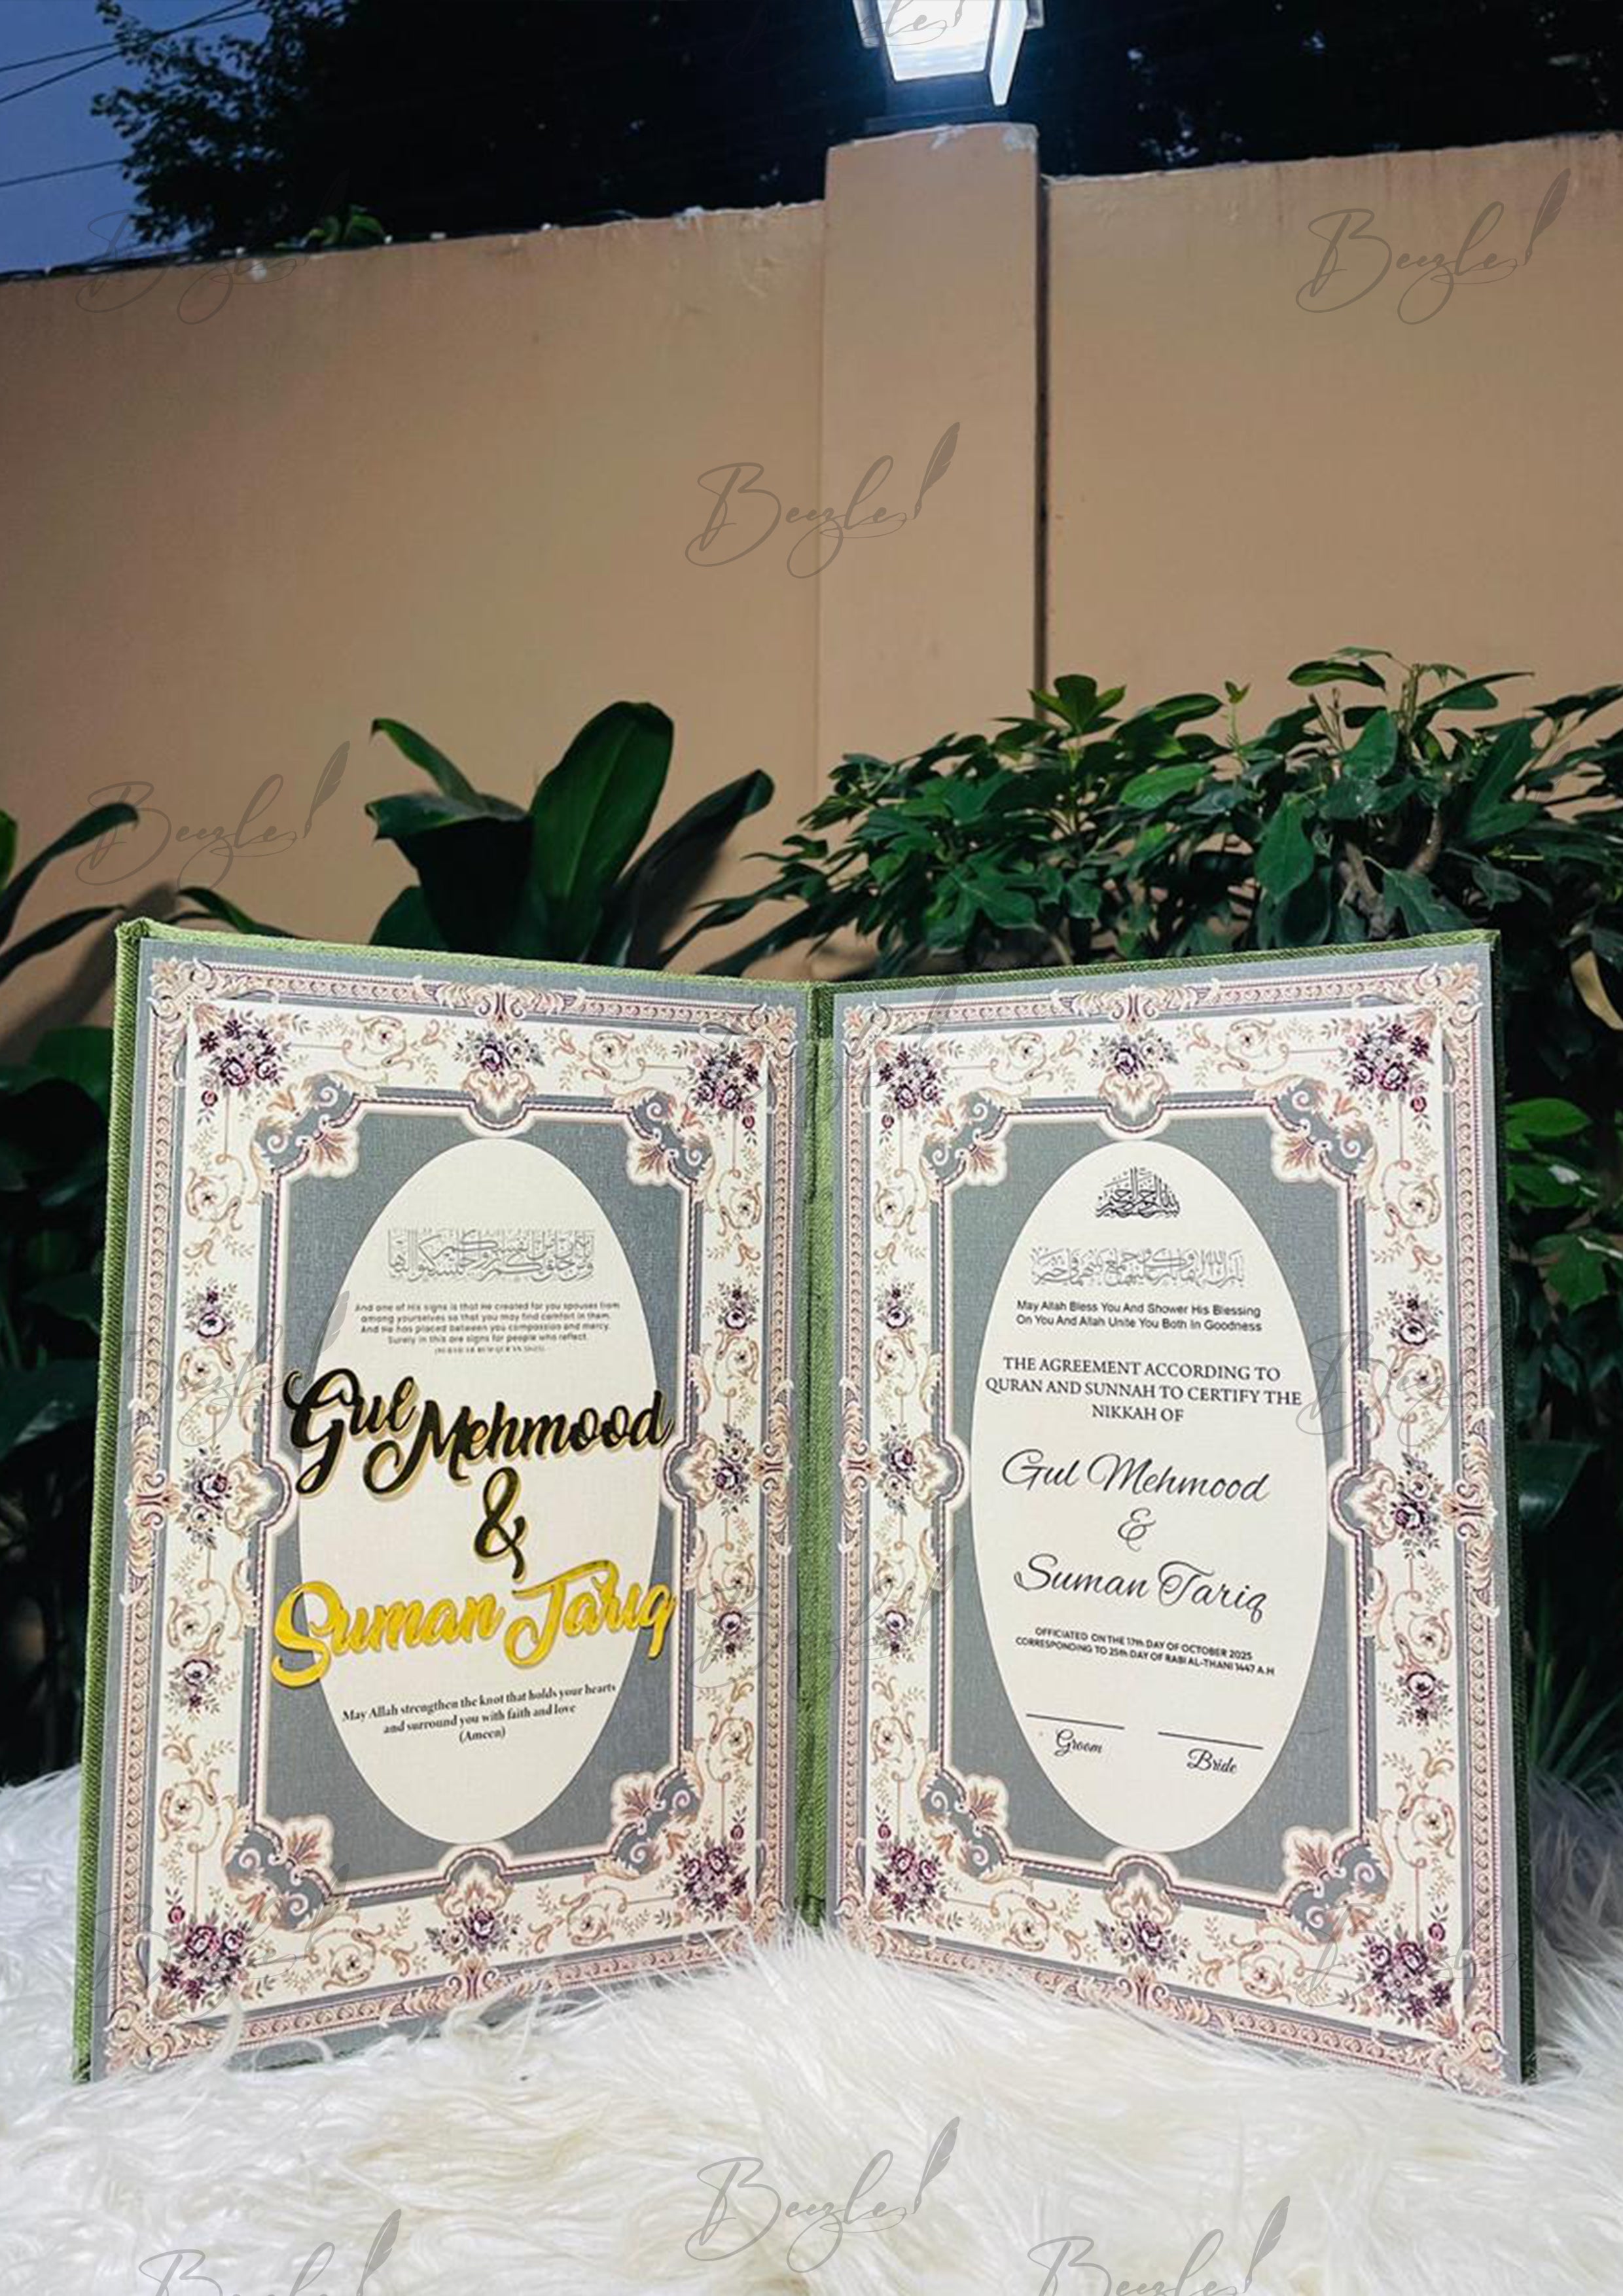 ومن آياته أن خلق لكم من أنفسكم أزواجا لتسكنوا إليها
And one of His signs is that He created for you spouses from
among yourselves so that you may find comfort in them.
And He has placed between you compassion and mercy.
Surely in this are signs for people who reflect.
Gul Mehmood
&
Suman Tariq
May Allah strengthen the knot that holds your hearts
and surround you with faith and love
(Ameen)
بسم الله الرحمن الرحيم
بارك الله لكما وبارك عليكما وجمع بينكما في خير
May Allah Bless You And Shower His Blessing
On You And Allah Unite You Both In Goodness
THE AGREEMENT ACCORDING TO
QURAN AND SUNNAH TO CERTIFY THE
NIKKAH OF
Gul Mehmood
&
Suman Tariq
OFFICIATED ON THE 17th DAY OF OCTOBER 2025
CORRESPONDING TO 25th DAY OF RABI AL-THANI 1447 A.H
Groom
Bride
Beezle